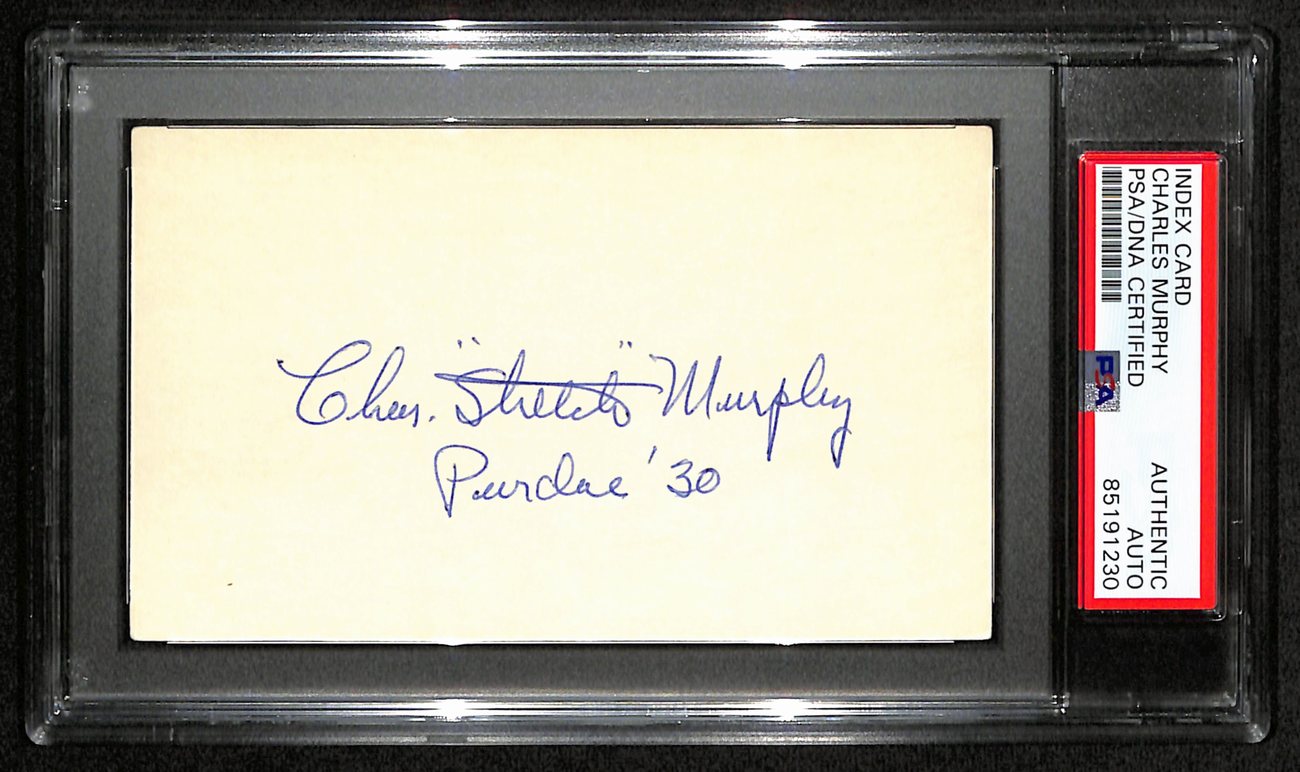 Chas. "Stretch" Murphy
Purdue '30
INDEX CARD
CHARLES MURPHY
PSA/DNA CERTIFIED
PSA
AUTHENTIC
AUTO
85191230